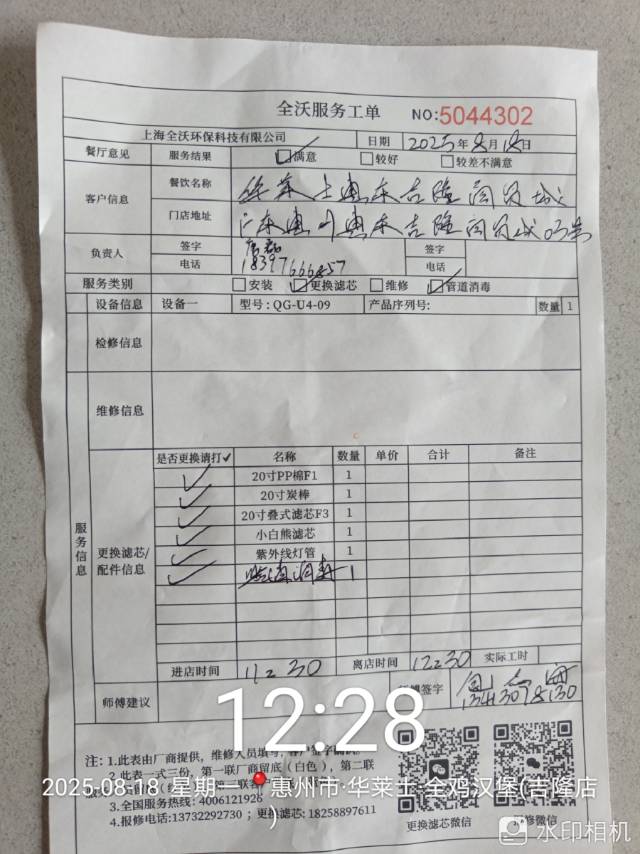 全沃服务工单 NO:5044302
上海全沃环保科技有限公司 日期 2025年8月18日
餐厅意见 服务结果 满意 较好 较差不满意
客户信息 餐饮名称 华莱士惠东吉隆商贸城
门店地址 广东惠州惠东吉隆商贸城
负责人 签字 签字
电话 电话
服务类别 安装 更换滤芯 维修 管道消毒
设备信息 设备一 型号:QG-U4-09 产品序列号: 数量 1
检修信息
维修信息
服务信息
更换滤芯/配件信息
是否更换请打✓ 名称 数量 单价 合计 备注
✓ 20寸PP棉F1 1
✓ 20寸炭棒 1
✓ 20寸叠式滤芯F3 1
✓ 小白熊滤芯 1
✓ 紫外线灯管 1
✓ 管道消毒 1
进店时间 11:30 离店时间 12:30 实际工时
师傅建议 签字
12:28
注: 1.此表由厂商提供，维修人员填写，
2.此表一式三份，第一联厂商留底（白色），第二联
2025-08-18 星期一 惠州市·华莱士·全鸡汉堡(吉隆店
)
3.全国服务热线: 4006121926
4.报修电话:13732292730；更换滤芯: 18258897611
更换滤芯微信 报修微信
水印相机